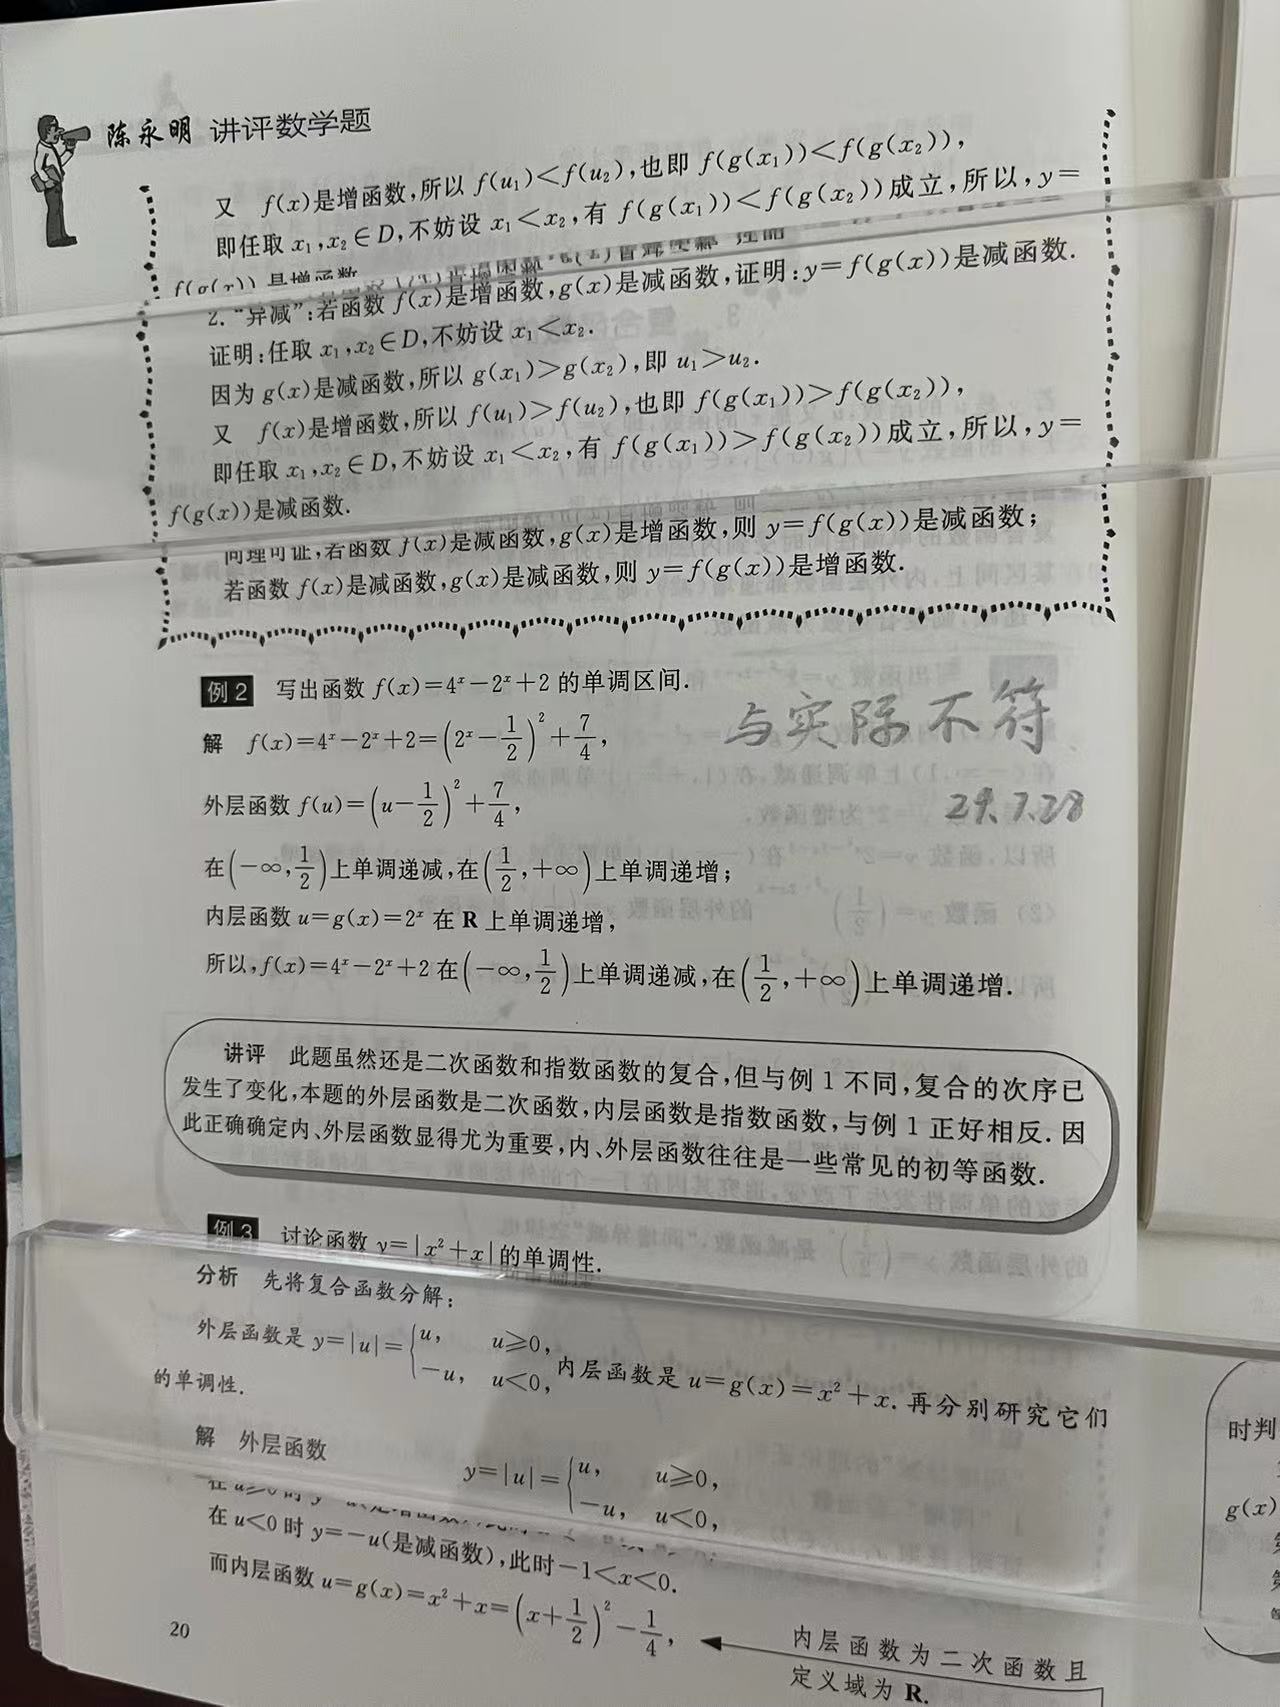 陈永明 讲评数学题
又 f(x)是增函数,所以 f(u₁)<f(u₂),也即 f(g(x₁))<f(g(x₂)),
即任取 x₁,x₂∈D,不妨设 x₁<x₂,有 f(g(x₁))<f(g(x₂))成立,所以,y=
f(g(x))是增函数
2. “异减”:若函数 f(x)是增函数,g(x)是减函数,证明:y=f(g(x))是减函数.
证明:任取 x₁,x₂∈D,不妨设 x₁<x₂.
因为 g(x)是减函数,所以 g(x₁)>g(x₂),即 u₁>u₂.
又 f(x)是增函数,所以 f(u₁)>f(u₂),也即 f(g(x₁))>f(g(x₂)),
即任取 x₁,x₂∈D,不妨设 x₁<x₂,有 f(g(x₁))>f(g(x₂))成立,所以,y=
f(g(x))是减函数.
同理可证,若函数 f(x)是减函数,g(x)是增函数,则 y=f(g(x))是减函数;
若函数 f(x)是减函数,g(x)是减函数,则 y=f(g(x))是增函数.
例2 写出函数 f(x)=4ˣ−2ˣ+2 的单调区间.
与实际不符
解 f(x)=4ˣ−2ˣ+2=(2ˣ−1/2)²+7/4,
外层函数 f(u)=(u−1/2)²+7/4,
在(−∞,1/2)上单调递减,在(1/2,+∞)上单调递增;
内层函数 u=g(x)=2ˣ 在 R 上单调递增,
所以,f(x)=4ˣ−2ˣ+2 在(−∞,1/2)上单调递减,在(1/2,+∞)上单调递增.
讲评 此题虽然还是二次函数和指数函数的复合,但与例 1 不同,复合的次序已
发生了变化,本题的外层函数是二次函数,内层函数是指数函数,与例 1 正好相反. 因
此正确确定内、外层函数显得尤为重要,内、外层函数往往是一些常见的初等函数.
例3 讨论函数 y=|x²+x|的单调性.
分析 先将复合函数分解:
外层函数是 y=|u|={u, u≥0, −u, u<0, 内层函数是 u=g(x)=x²+x. 再分别研究它们
的单调性.
解 外层函数
y=|u|={u, u≥0, −u, u<0,
在 u<0 时 y=−u(是减函数),此时−1<x<0.
而内层函数 u=g(x)=x²+x=(x+1/2)²−1/4,
内层函数为二次函数且
定义域为 R.
20
时判
g(x)